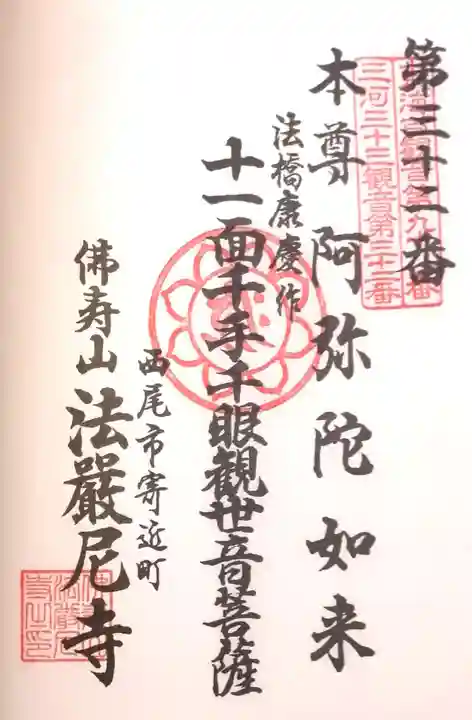 第三十二番
三河三十三観音第三十二番
本尊 阿弥陀如来
法橋康慶作
十一面千手千眼観世音菩薩
西尾市寄近町
佛寿山 法嚴尼寺